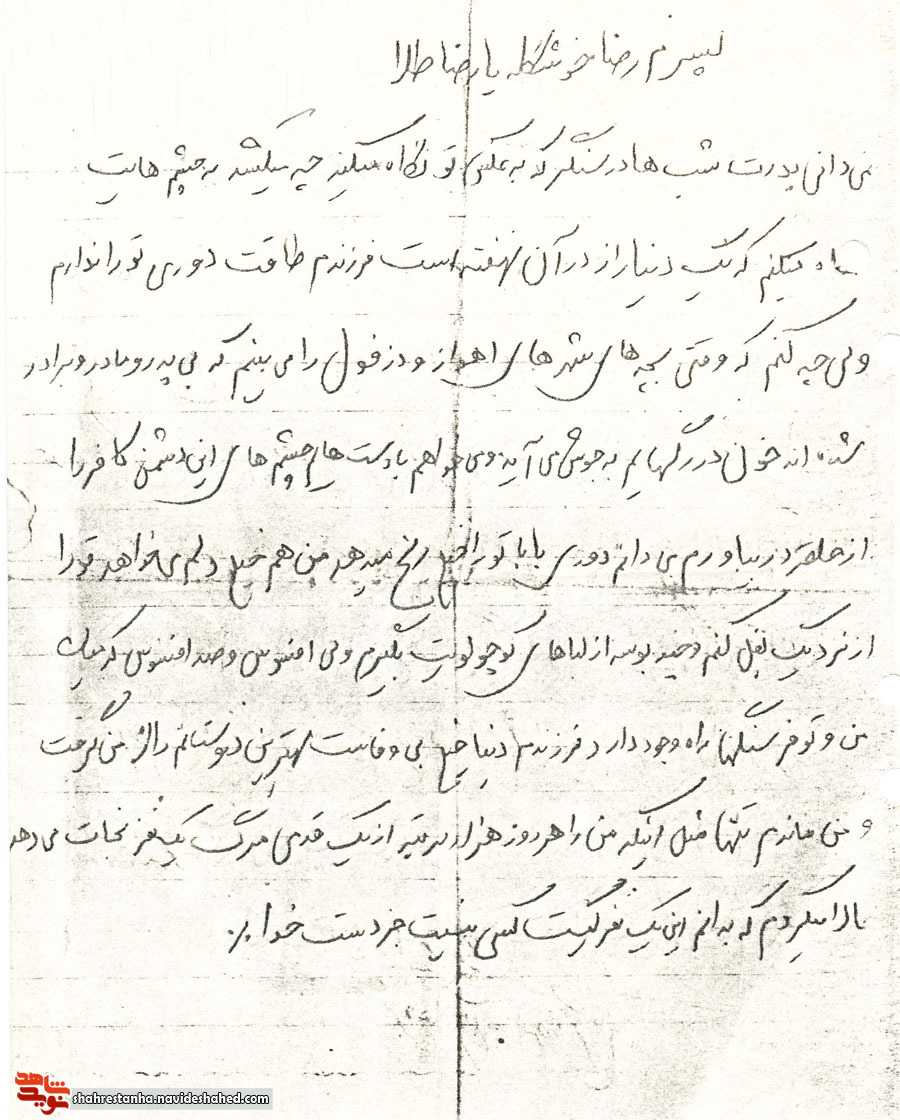 پسرم رضا خوشگله یا رضا طلا
می دانی پدرت شب ها در سنگر که به عکس تو نگاه میکند چه میکشد به چشم هایت
میکنم که یک دنیا راز در آن نهفته است فرزندم طاقت دوری تو را ندارم
ولی چه کنم که وقتی بچه های شهرهای اهواز و دزفول را می بینم که بی پدر و مادر و برادر
شده اند خون در رگهایم به جوش می آید و می خواهم با دست هایم چشم های این دشمن کافر را
از حلقه در بیاورم می دانم دوری بابا تو را خیلی رنج میدهد من هم خیلی دلم می خواهد تو را
از نزدیک بغل کنم و چند بوسه از لباهای کوچولویت بگیرم ولی افسوس و صد افسوس که میان
من و تو فرسنگها راه وجود دارد فرزندم دنیا خیلی بی وفاست بهترین دوستانم را از من گرفت
و من ماندم تنها مثل اینکه من را هر روز هزار مرتبه از یک قدمی مرگ یک نفر نجات می دهد
که بدانم این یک نفر کیست کسی نیست جز دست خدا
نوید شاهد
shahrestanha.navideshahed.com